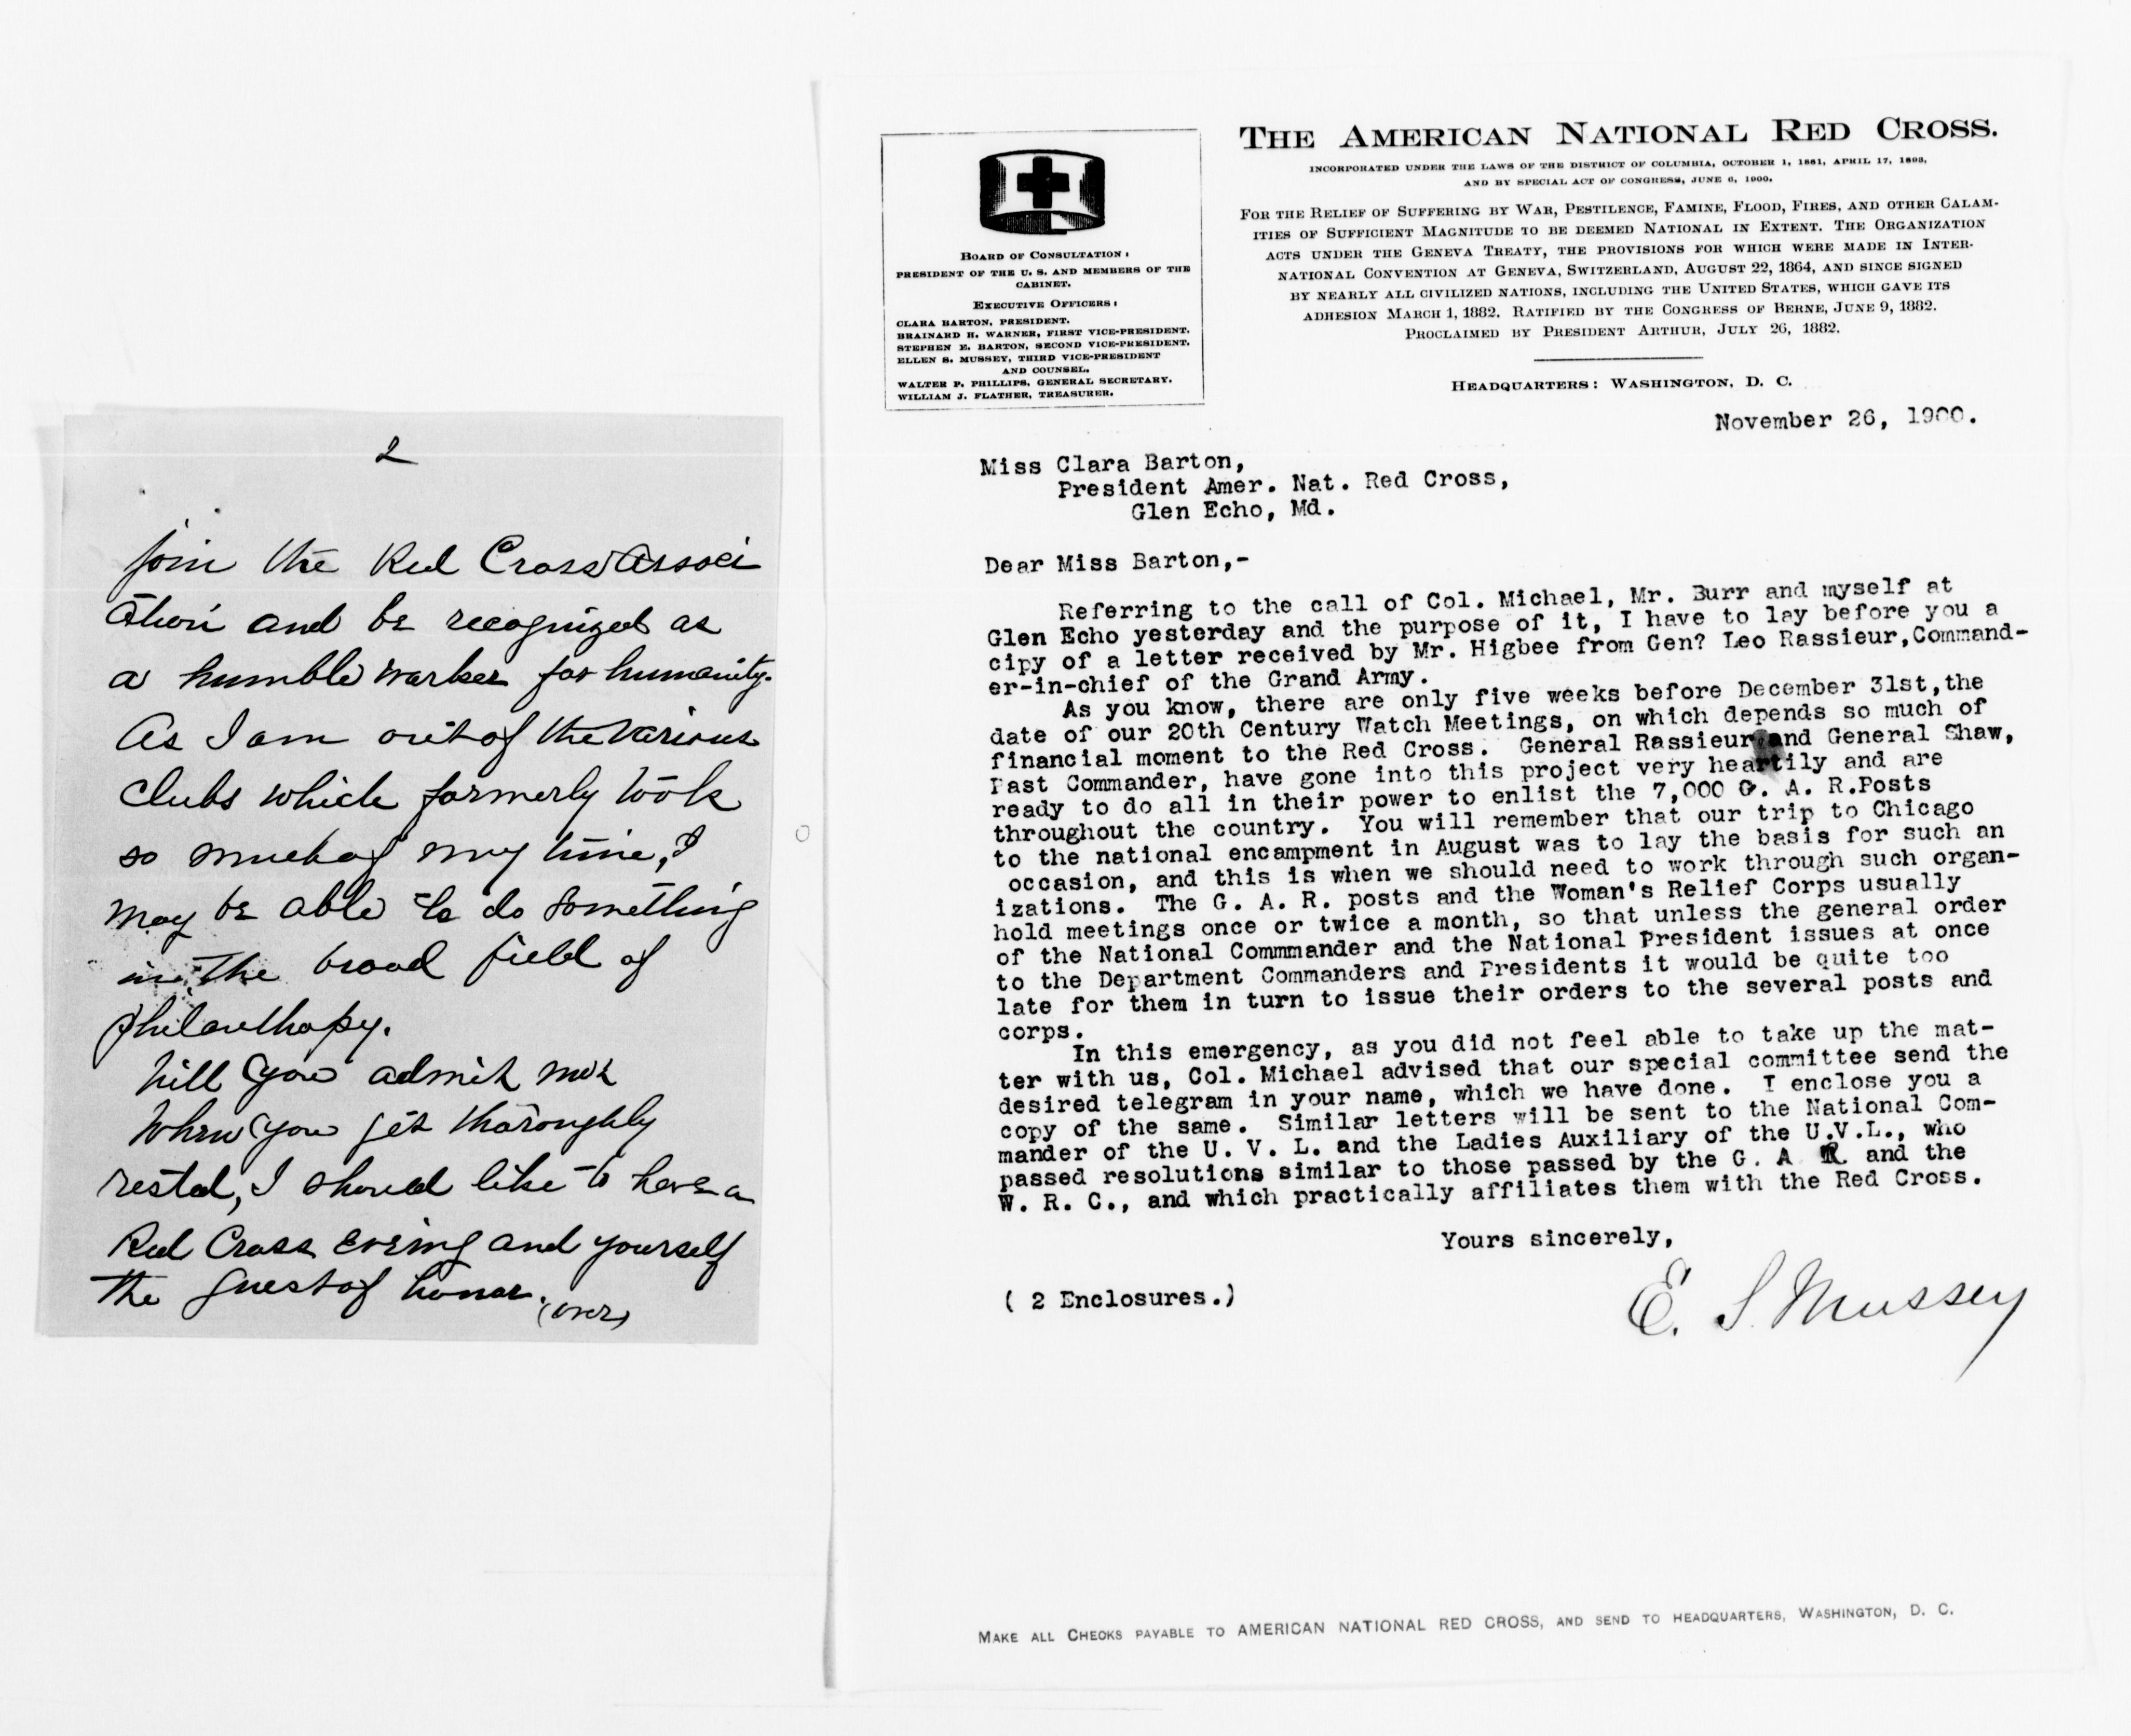 2
join the Red Cross Associ
ation and be recognized as
a humble worker for humanity.
As I am out of the various
Clubs which formerly took
so much of my time, I
may be able to do something
in the broad field of
philanthopy.
Will you admit me?
When you get thoroughly
rested, I should like to have a
Red Cross Evening and yourself
the guest of honor.
(over)
THE AMERICAN NATIONAL RED CROSS.
INCORPORATED UNDER THE LAWS OF THE DISTRICT OF COLUMBIA, OCTOBER 1, 1881, APRIL 17, 1893,
AND BY SPECIAL ACT OF CONGRESS, JUNE 6, 1900.
FOR THE RELIEF OF SUFFERING BY WAR, PESTILENCE, FAMINE, FLOOD, FIRES, AND OTHER CALAM-
ITIES OF SUFFICIENT MAGNITUDE TO BE DEEMED NATIONAL IN EXTENT. THE ORGANIZATION
ACTS UNDER THE GENEVA TREATY, THE PROVISIONS FOR WHICH WERE MADE IN INTER-
NATIONAL CONVENTION AT GENEVA, SWITZERLAND, AUGUST 22, 1864, AND SINCE SIGNED
BY NEARLY ALL CIVILIZED NATIONS, INCLUDING THE UNITED STATES, WHICH GAVE ITS
ADHESION MARCH 1, 1882. RATIFIED BY THE CONGRESS OF BERNE, JUNE 9, 1882.
PROCLAIMED BY PRESIDENT ARTHUR, JULY 26, 1882.
HEADQUARTERS: WASHINGTON, D. C.
BOARD OF CONSULTATION:
PRESIDENT OF THE U. S. AND MEMBERS OF THE
CABINET.
EXECUTIVE OFFICERS:
CLARA BARTON, PRESIDENT.
BRAINARD H. WARNER, FIRST VICE-PRESIDENT.
STEPHEN E. BARTON, SECOND VICE-PRESIDENT.
ELLEN S. MUSSEY, THIRD VICE-PRESIDENT
AND COUNSEL.
WALTER P. PHILLIPS, GENERAL SECRETARY.
WILLIAM J. FLATHER, TREASURER.
November 26, 1900.
Miss Clara Barton,
President Amer. Nat. Red Cross,
Glen Echo, Md.
Dear Miss Barton,-
Referring to the call of Col. Michael, Mr. Burr and myself at
Glen Echo yesterday and the purpose of it, I have to lay before you a
cipy of a letter received by Mr. Higbee from Gen? Leo Rassieur,Command-
er-in-chief of the Grand Army.
As you know, there are only five weeks before December 31st,the
date of our 20th Century Watch Meetings, on which depends so much of
financial moment to the Red Cross. General Rassieur and General Shaw,
Past Commander, have gone into this project very heartily and are
ready to do all in their power to enlist the 7,000 G. A. R.Posts
throughout the country. You will remember that our trip to Chicago
to the national encampment in August was to lay the basis for such an
occasion, and this is when we should need to work through such organ-
izations. The G. A. R. posts and the Woman's Relief Corps usually
hold meetings once or twice a month, so that unless the general order
of the National Commmander and the National President issues at once
to the Department Commanders and Presidents it would be quite too
late for them in turn to issue their orders to the several posts and
corps.
In this emergency, as you did not feel able to take up the mat-
ter with us, Col. Michael advised that our special committee send the
desired telegram in your name, which we have done. I enclose you a
copy of the same. Similar letters will be sent to the National Com-
mander of the U. V. L. and the Ladies Auxiliary of the U.V.L., who
passed resolutions similar to those passed by the G. A R and the
W. R. C., and which practically affiliates them with the Red Cross.
Yours sincerely,
( 2 Enclosures.)
E. S. Mussey
MAKE ALL CHECKS PAYABLE TO AMERICAN NATIONAL RED CROSS, AND SEND TO HEADQUARTERS, WASHINGTON, D. C.